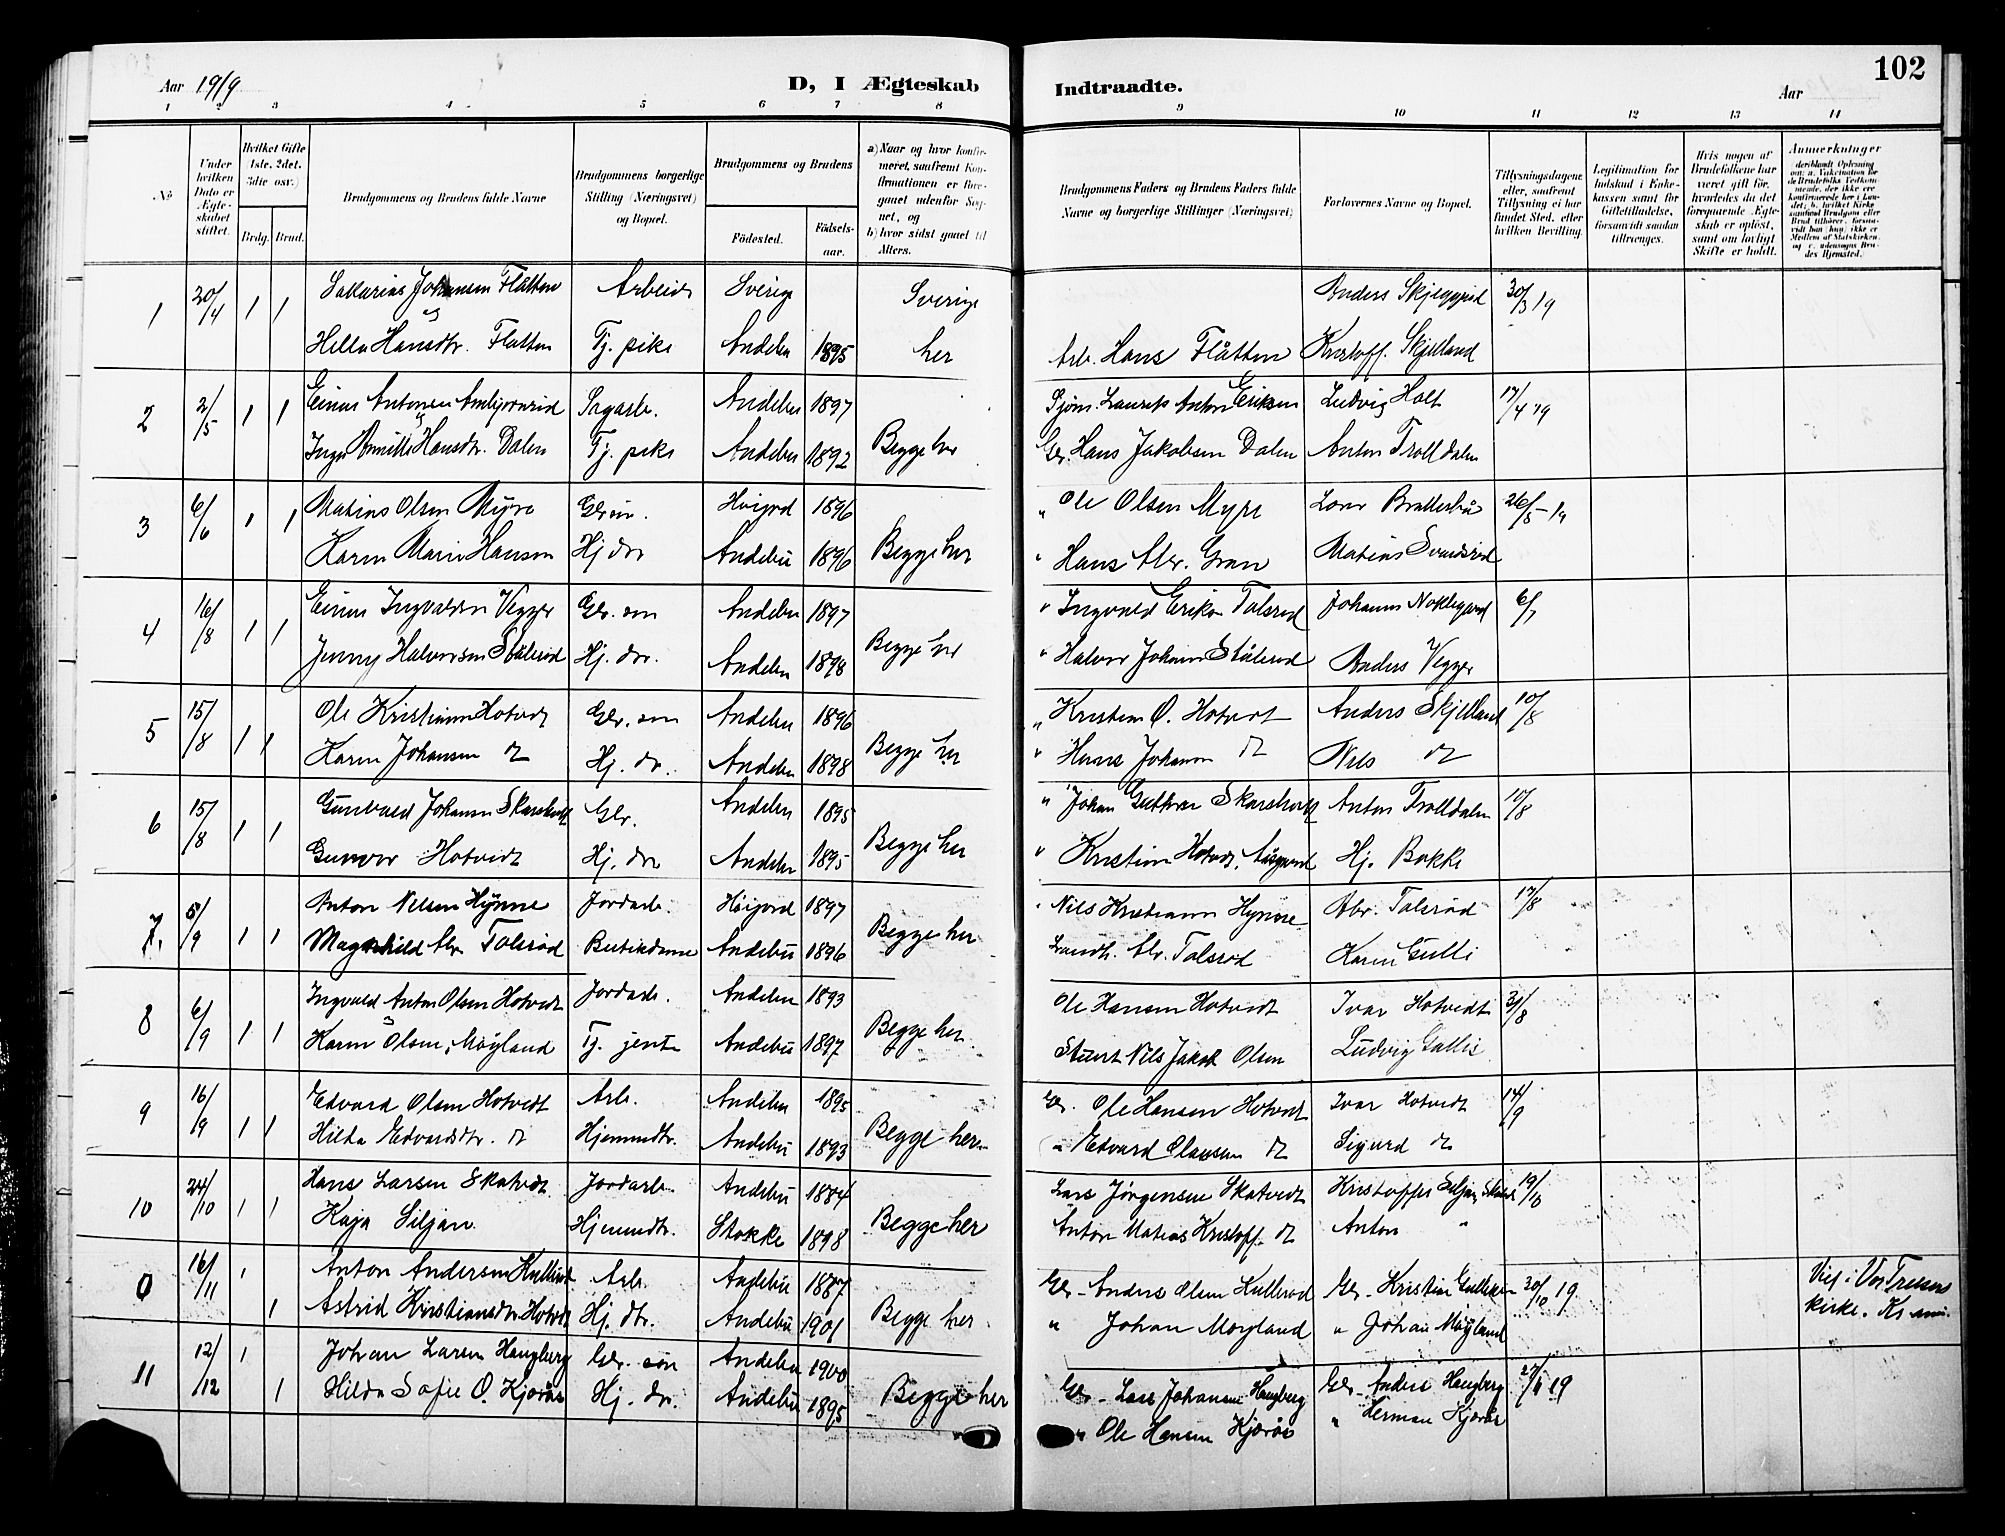 Aar 1919
D, I Ægteskab
Indtraadte.
Aar
102
1 2 3 4 5 6 7 8 9 10 11 12 13 14
No
Under hvilken Dato er Ægteskabet stiftet.
Hvilket Gifte 1ste, 2det, 3die osv.)
Brdg. Brud.
Brudgommens og Brudens fulde Navne
Brudgommens borgerlige Stilling (Næringsvei) og Bopæl.
Brudgommens og Brudens
Fødested.
Fødselsaar.
a) Naar og hvor konfirmeret, saafremt Konfirmationen er foregaaet udenfor Sognet, og
b) hvor sidst gaaet til Alters.
Brudgommens Faders og Brudens Faders fulde Navne og borgerlige Stillinger (Næringsvei)
Forlovernes Navne og Bopæl.
Tillysningsdagene eller, saafremt Tillysning ei har fundet Sted, efter hvilken Bevilling.
Legitimation for Indskud i Enkekassen samt for Giftetilladelse, forsaavidt saadan tiltrænges.
Hvis nogen af Brudefolkene har været gift før, hvorledes da det foregaaende Ægteskab er opløst, samt om lovligt Skifte er holdt.
Anmerkninger
1 20/4 1 1 Johansen Flåtten Arbeid Sverige Sverige Anders 30/3 19
Hella Hansdtr. Flatten Tj. pike Andebu 1895 her Arb. Hans Flåtten Kristoff. Skjelland
2 2/5 1 1 Einar Antonsen Sagarb. Andebu 1897 Sjøm. Laurits Anton Eriksen Ludvig Holt 17/4 19
Inga Hansdtr. Dalen Tj. pike Andebu 1892 Begge her Gbr. Hans Jakobsen Dalen Anton Trolldalen
3 6/6 1 1 Matias Olsen Myre Høijord 1896 " Ole Olsen Myre 26/5-19
Karen Marie Hansen Hj. dtr Andebu 1896 Begge her " Hans Abr. Gran Matias
4 16/8 1 1 Einar Ingvaldsen Vegger Gbr. søn Andebu 1897 " Ingvald Eriksen Tolsrød Johannes 6/7
Jenny Halvorsen Stålerød Hj. dtr. Andebu 1898 Begge her " Halvor Johansen Stålerød Anders Vegger
5 15/8 1 1 Ole Kristiansen Hotvedt Gbr. søn Andebu 1896 " Kristian O. Hotvedt Anders Skjelland 10/8
Karen Johansen do Hj. dtr. Andebu 1898 Begge her " Hans Johansen do Nils do
6 15/8 1 1 Gunvald Johansen Gbr. Andebu 1895 " Johan Anton Trolldalen 10/8
Gunvor Hotvedt Hj. dtr Andebu 1895 Begge her " Kristian Hotvedt, Hj. Bakke
7. 5/9 1 1 Anton Nilsen Hynne Jordarb. Høijord 1897 Nils Kristiansen Hynne Abr. Tolsrød 17/8
Magnhild Abr Tolsrød Andebu 1896 Begge her Landh. Abr. Tolsrød Karen Gulli
8 6/9 1 1 Ingvald Anton Olsen Hotvedt Jordarb. Andebu 1893 Ole Hansen Hotvedt Ivar Hotvedt 31/8
Karen Olsen, Møyland Tj. jente Andebu 1897 Begge her Nils Jakob Olsen Ludvig Gallis
9 16/9 1 1 Edvard Olsen Hotvedt Arb. Andebu 1895 Gbr. Ole Hansen Hotvedt Ivar Hotvedt 14/9
Hilda Edvardsdtr. do Hjemmedtr. Andebu 1893 Begge her " Edvard Olaussen do Sigurd do
10 24/10 1 1 Hans Larsen Skatvedt Jordarb. Andebu 1884 Lars Jørgensen Skatvedt Kristoffer Siljan, 19/10
Kaja Siljan. Hjemmedtr. Stokke 1898 Begge her Anton Matias Kristoff. do Anton "
0 16/11 1 Anton Andersen Kullerød Arb. Andebu 1887 Gbr - Anders Olsen Kullerød Gbr - Kristian Gulliksen 30/10 19 Viet i Vor Frelsers
1 Astrid Kristiansdtr Hotvedt Hj. dtr. Andebu 1901 Begge her " Johan Møyland " Johan Møyland kirke. Kr.ania.
11 12/12 1 Johan Larsen Haugberg Gbr. søn Andebu 1900 Gbr - Lars Johansen Haugberg Gbr - Anders Haugberg 27/11 19
1 Hilda Sofie O. Kjærås Hj. dtr. Andebu 1895 Begge her " Ole Hansen Kjærås " Herman Kjærås